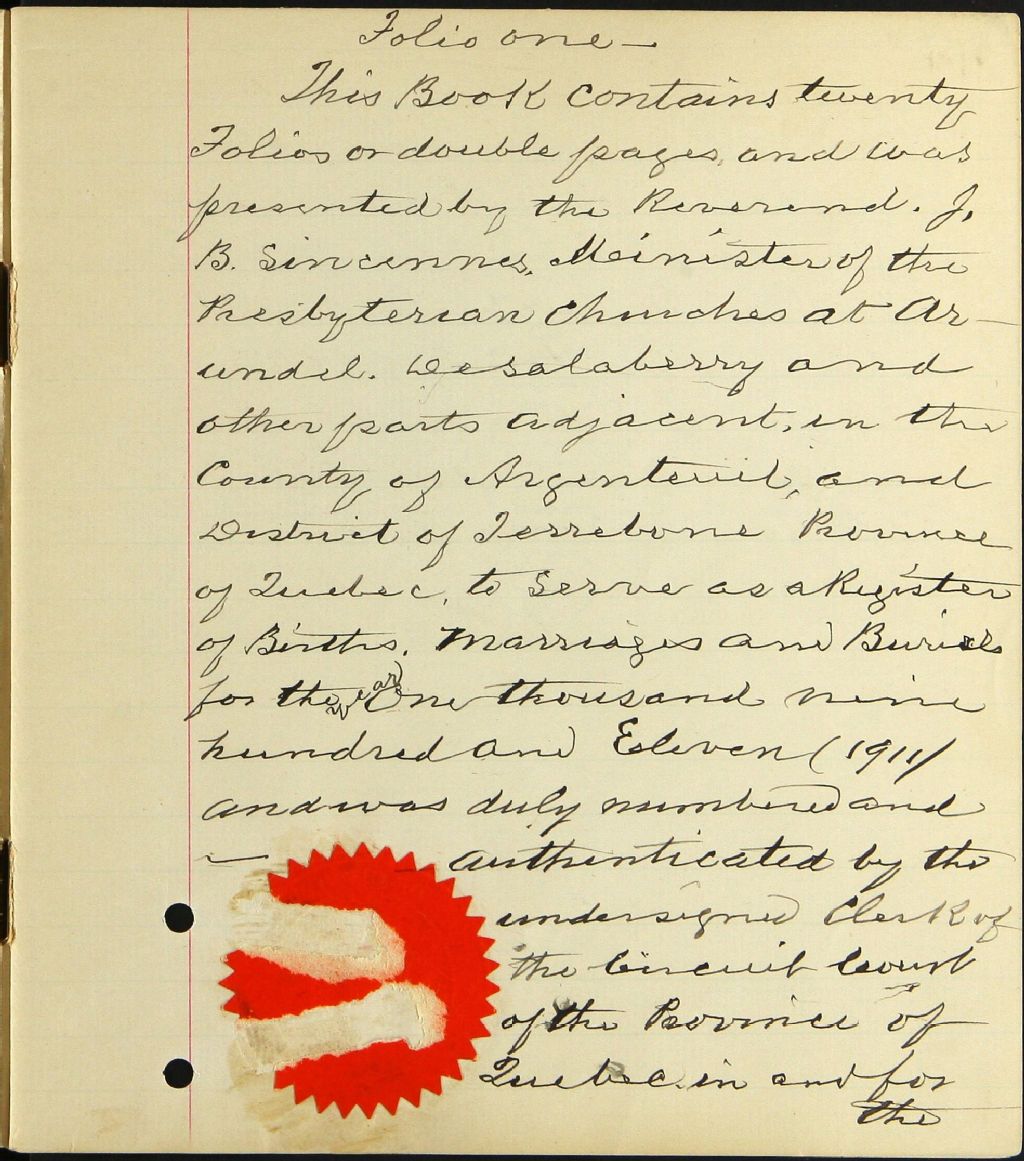 Folio one —
This Book contains twenty
Folios or double pages, and was
presented by the Reverend. J.
B. Sincennes, Minister of the
Presbyterian Churches at Ar-
undel. Desalaberry and
other parts adjacent, in the
County of Argenteuil, and
District of Terrebone Province
of Quebec, to serve as a Register
of Births, Marriages and Burials
for the year One thousand nine
hundred and Eleven (1911)
and was duly numbered and
— authenticated by the
undersigned Clerk of
the Circuit Court
of the Province of
Quebec in and for
the